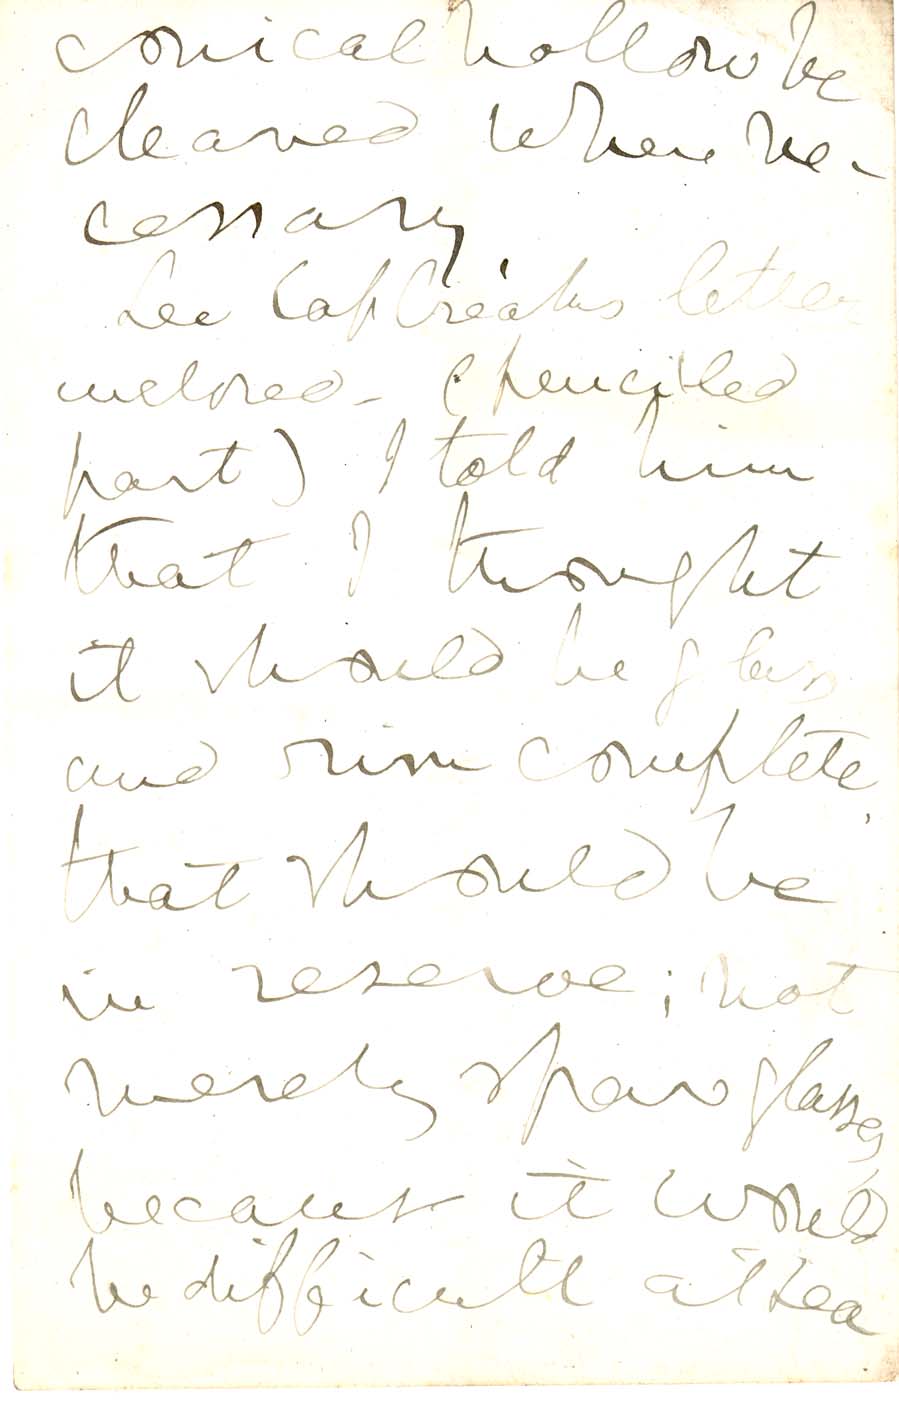 conical hollow be
cleaned where ne-
cessary
See Cap Creaks letter
inclosed - (penciled
part) I told him
that I thought
it should be glass
and rim complete,
that should be
in reserve; not
merely spare glasses,
because it would
be difficult at sea